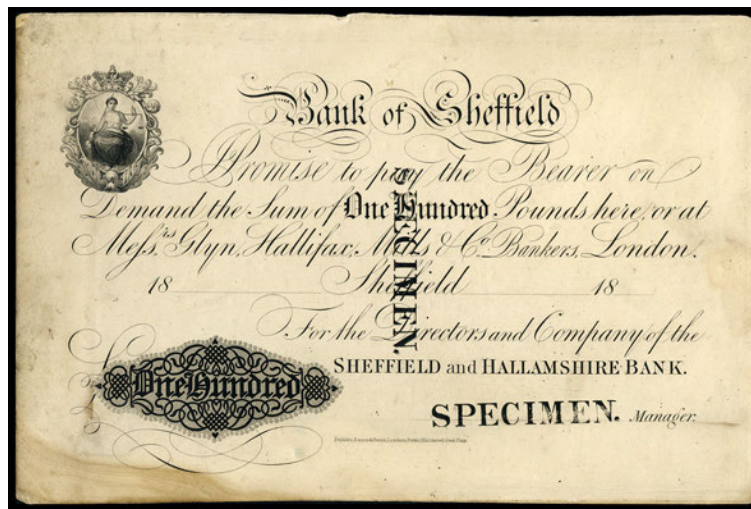 Bank of Sheffield
I Promise to pay the Bearer on
Demand the Sum of One Hundred Pounds here, or at
Messrs Glyn, Hallifax, Mills & Co. Bankers, London.
18 Sheffield 18
For the Directors and Company of the
SHEFFIELD and HALLAMSHIRE BANK.
£ One Hundred
SPECIMEN. Manager.
SPECIMEN.